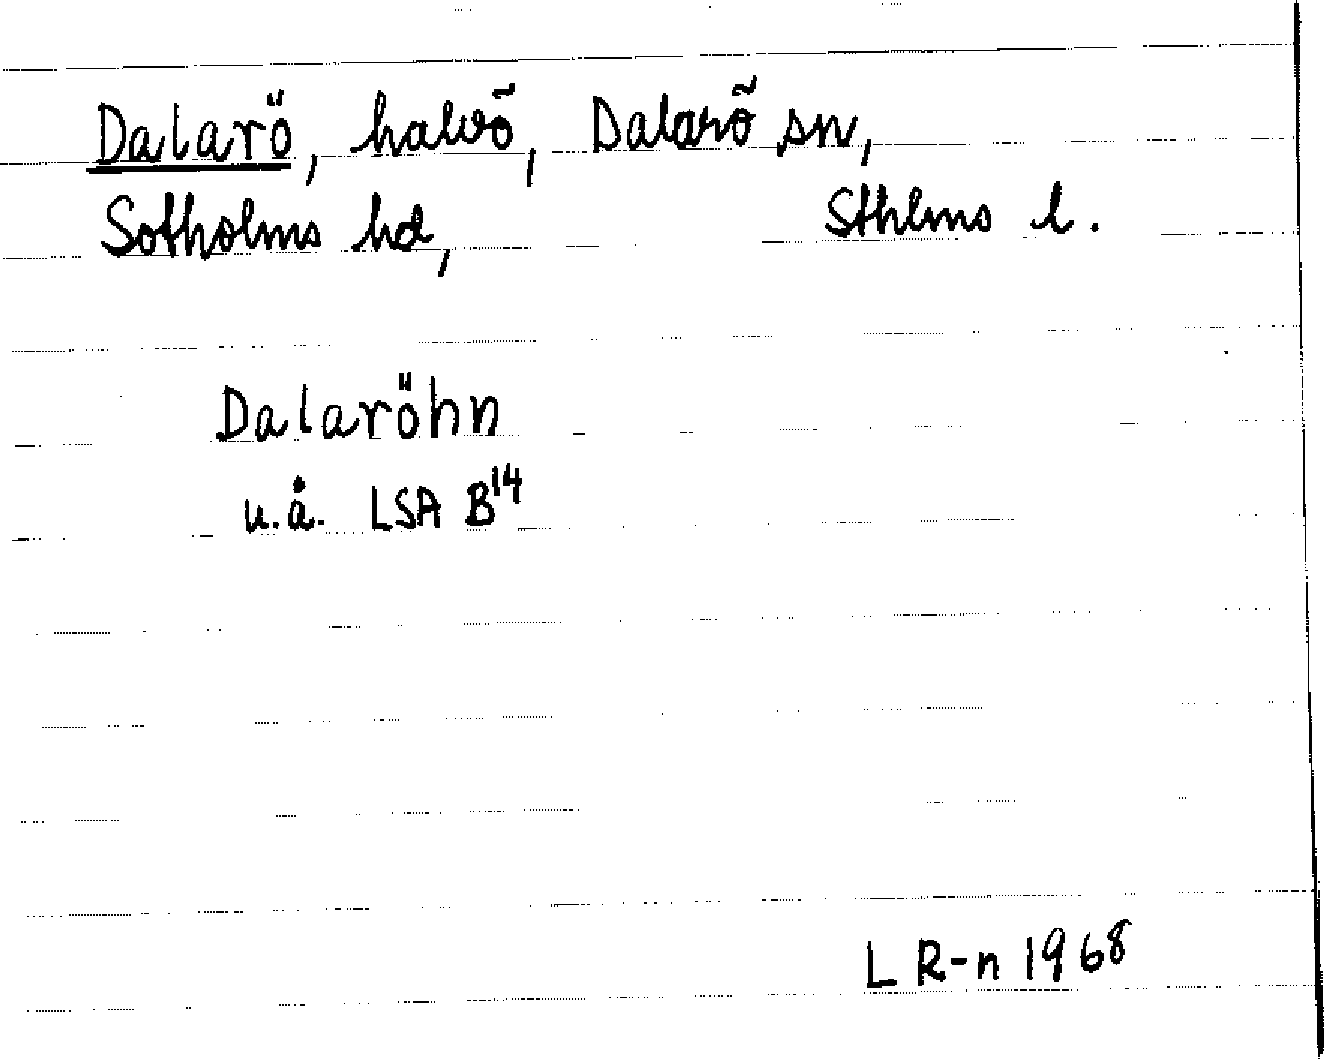 Dalarö, halvö, Dalarö sn,
Sotholms hd, Sthlms l.
Dalaröhn
u.å. LSA B14
L R-n 1968